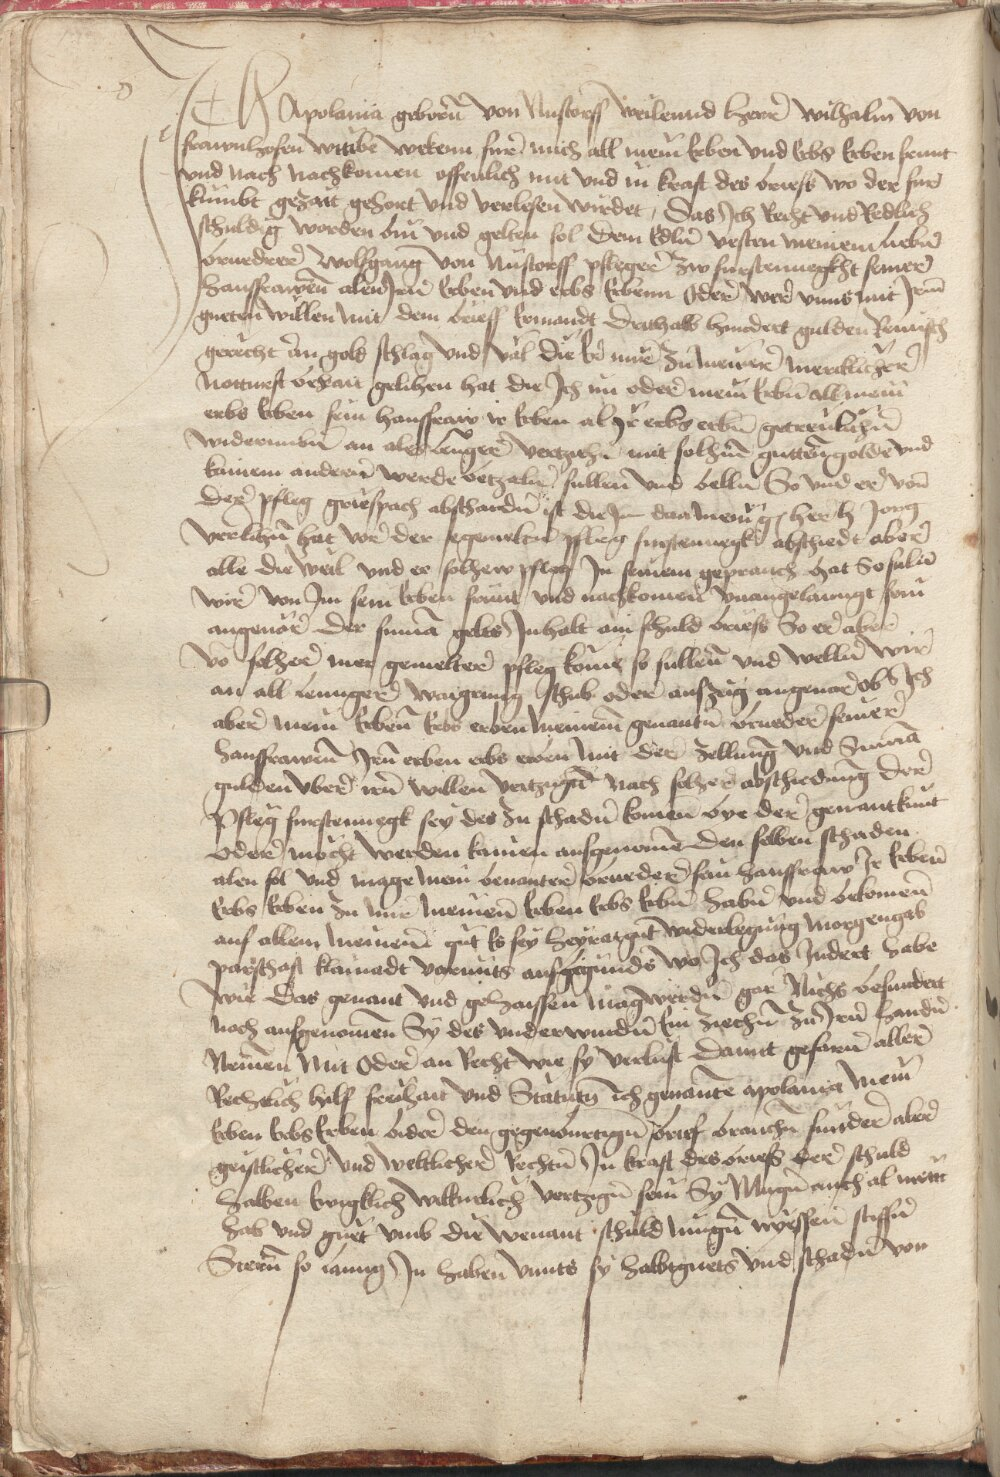 Ich Apolania geborn von Nustorff weilennd herr wilhalm von
frawnhofen wittibe bekenn fur mich all mein Erben und Erbs Erben freunt
und nach nachkomen offenlich mit und in kraft des briefs wo der fur
kumbt gezait gehort und verlesen wirdet, Das Ich Recht und Redlich
schuldig worden bin und gelten sol dem Edln vesten meinem liebn
bruedrer Wolfgang von Nustorff pfleger zw furstenneegkht seiner
hausfrawen alen Irn Erben und erbs Erbenn Oder wer unns mit Irm
gueten willen mit dem brieff Ermandt Drithalb hundert gulden Reinisch
gerecht an gold schlag und val die Er mir zu meiner mercklicher
notturft berait gelihen hat die Ich im oder mein Erbn all mein
erbs Erben sein hausfraw ir Erben al Ir erbs erbn getreulichn
widerumbn an ales lenger vertziehn mit solhm guttem golde und
kainem andern werde betzaln sullen und welln So und er von
der pfleg griespach abschaidn ist die Im her h Jorg
verlihn hat vor der egemeltn pfleg furstennegk abschiedt aber
alle die weil und er solhew pfleg In seinem geprauch hat So sulln
wir von Im sein Erben freunt und nachkomen unangelanngt sein
angevar der suma gelts Inhalt ain schuld briefs So er aber
vo solher mer gemelter pfleg kome so sullen und welln wir
an all lennger waigrung schub oder aufzug angevar Ob Ich
aber mein Erben Erbs erben meinem genantn brueder seiner
hausfrawen Irn erben erbs erben mit der zellung und Suma
gulden uber irn willen vertzugn nach solher abschiedung der
Pfleg furstennegk sey des zu schadn komen bye der genant kumt
oder mocht werden kainen ausgenomen den selben schaden
alen sol und mage mein benanter brueder sein hausfraw Ir Erben
Erbs Erben zu mir meinen Erben Erbs Erbn habn und bekomen
auf allem meinem gut Es sey heyratgut widerlegung morgengab
parschaft klainadt varnuts ausgegunds wo Ich das Indert habe
wie das genant und gehaissen mag werdn gar nichs besundert
noch ausgenomen Sy des underwindn Ein ziechn zu Irn handn
Nemen mit Oder an Recht wie sy verlust damit gefarn aller
Rechtlich hilf freihait und Statutn ich genante apolania mein
Erben Erbs Erben wider den gegenburtign brief brauchn sunder aber
geistlicher und weltlicher Rechtn In kraft des briefs der schuld
halben Ewigklich wilkurlich vertzign sein Sy Mugn auch al mein
hab und guet umb die benant schuld mugn nyessen stifftn
Storn so lanng In haben unnts sy halbtguets und schadn von